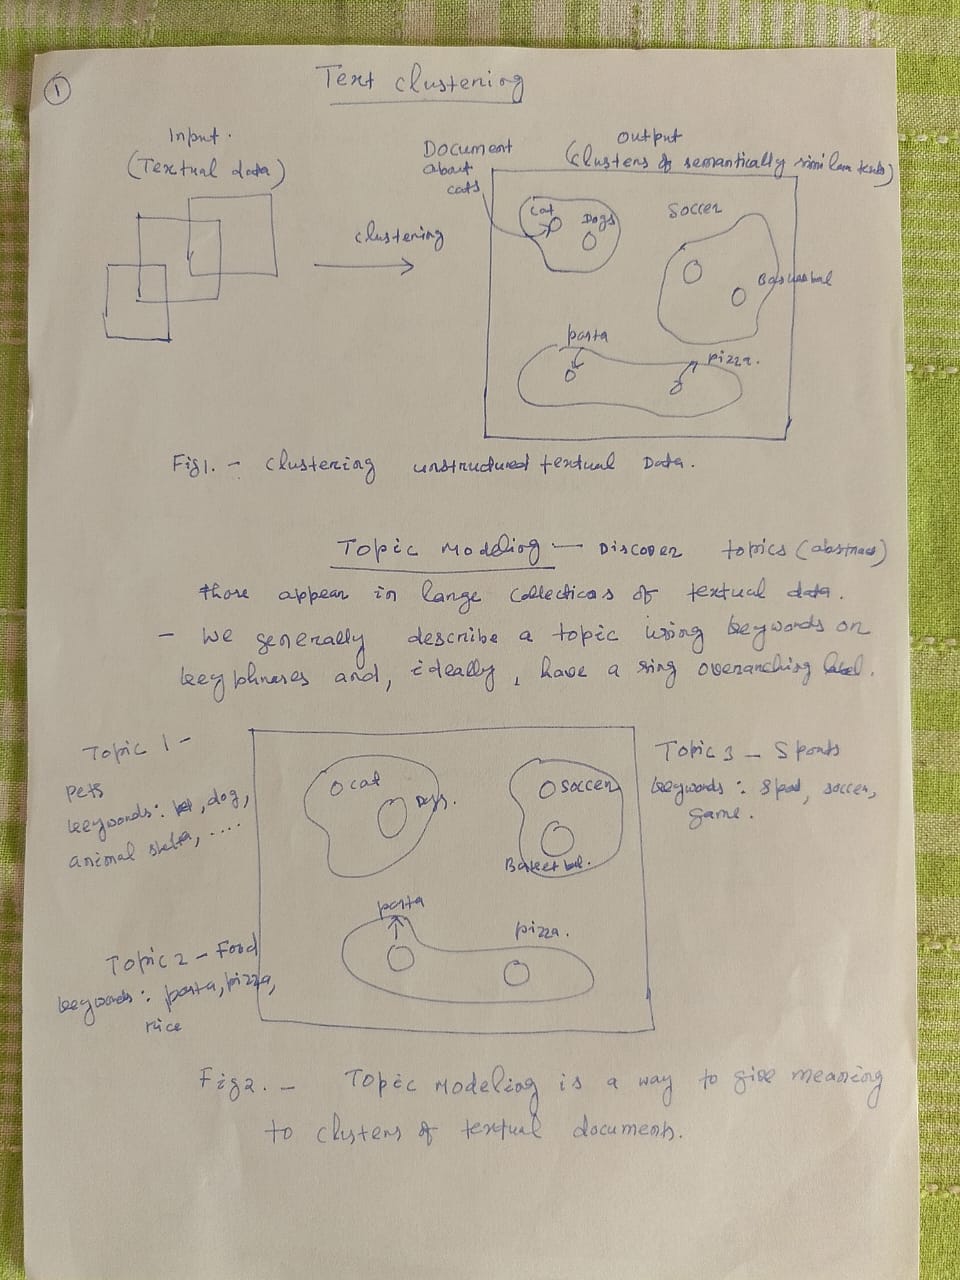 1
Text clustering
Input.
(Textual data)
clustering
Document
about
cats
Output
(clusters of semantically similar texts)
Cat
Dogs
Soccer
pasta
pizza.
Fig1. - Clustering unstructured textual Data.
Topic Modeling — Discover topics (abstract)
those appear in large collections of textual data.
- We generally describe a topic using keywords or
keyphrases and, ideally, have a sing overarching label.
Topic 1 -
Pets
keywords: , dog,
animal , ....
Topic 2 - Food
keywords: pasta, pizza,
rice
cat
Dogs.
Soccer
pasta
pizza.
Topic 3 - Sports
keywords: , soccer,
game.
Fig2. - Topic Modeling is a way to give meaning
to clusters of textual documents.